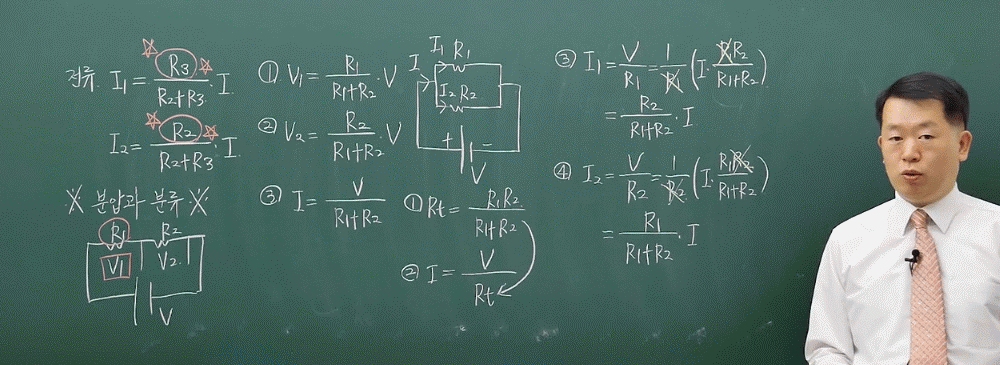 전류. I₁ = R₃ / (R₂+R₃) · I.
I₂ = R₂ / (R₂+R₃) · I.
※ 분압과 분류 ※
R₁ R₂
V₁ V₂.
V
① V₁ = R₁ / (R₁+R₂) · V
② V₂ = R₂ / (R₁+R₂) · V
③ I = V / (R₁+R₂)
I₁ R₁
I
I₂ R₂
+ −
V
① Rt = R₁R₂ / (R₁+R₂)
② I = V / Rt
③ I₁ = V/R₁ = 1/R₁ (I · R₁R₂ / (R₁+R₂))
= R₂ / (R₁+R₂) · I
④ I₂ = V/R₂ = 1/R₂ (I · R₁R₂ / (R₁+R₂))
= R₁ / (R₁+R₂) · I